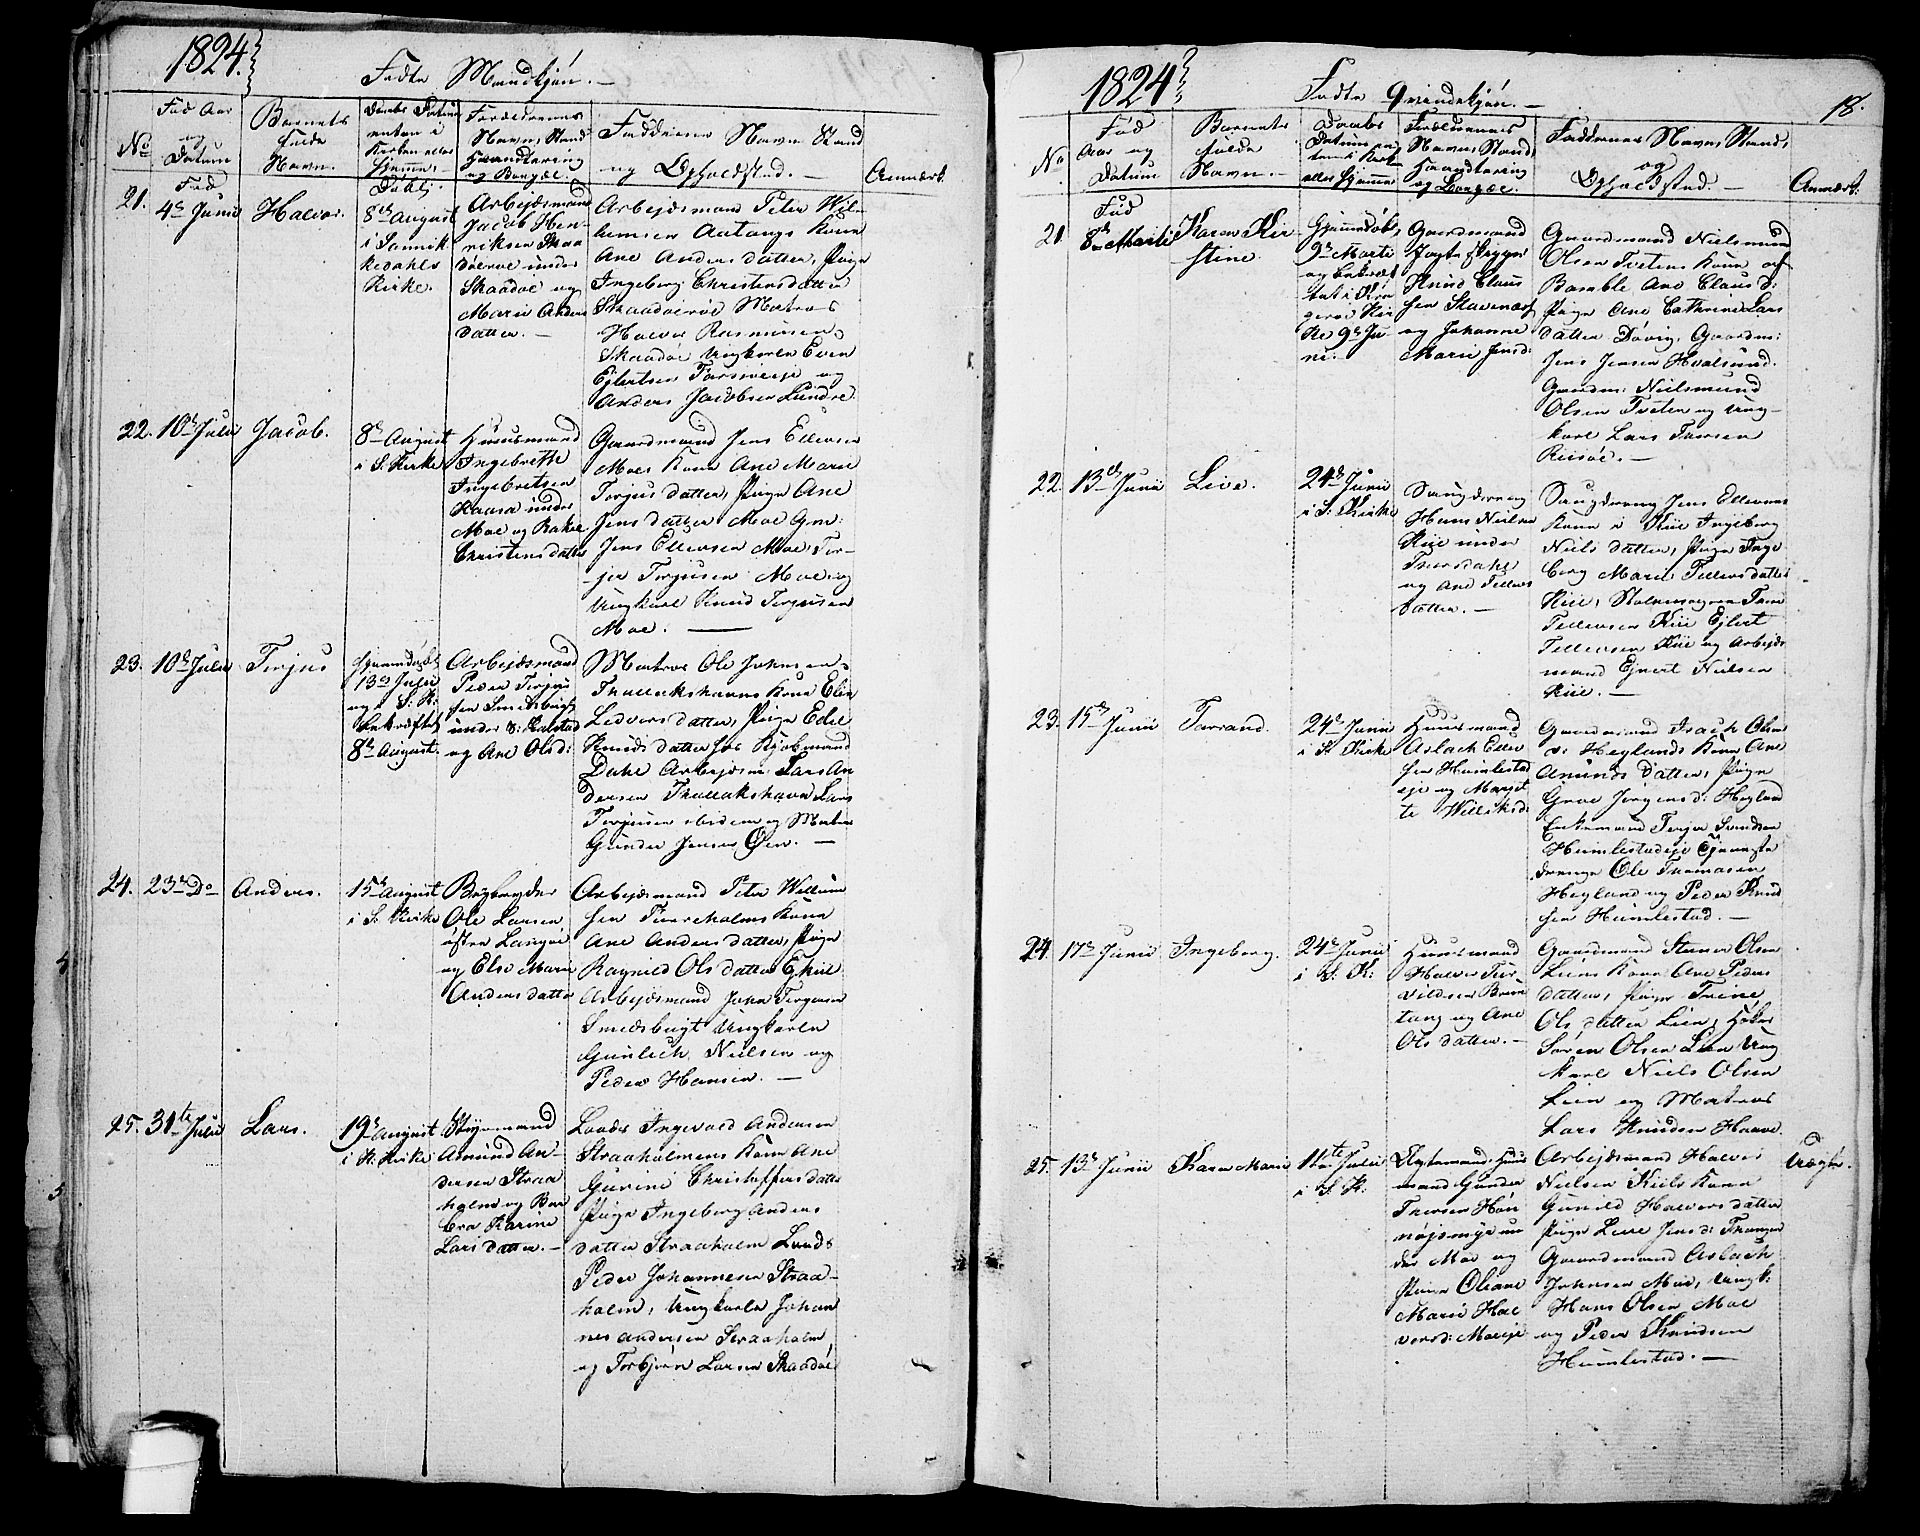 1824.
Fødte Mandkjøn. —
No
Fød Aar
og
Datum
Barnets
fulde
Navn.
Daabs Datum
enten i
Kirken eller
Hjemme
Forældrenes
Navn, Stand
Haandtering
og Bopæl.
Faddernes Navn Stand
og Opholdsted. —
Anmærk.
21.
Fød
4de Junii
Halvor.
Døbt
8de August
i Sannik
kedahls
Kirke.
Arbejdsmand
Jacob Hen
riksen Skaa
døeroe under
Skaadøe og
Marie Anders
datter. —
Arbejdsmand Peter Wil
lumsen Kone
Ane Anders datter, Pige
Ingeborg Christensdatter
Skaadøerøe Matros
Halvor Rasmusen
Skaadøe Ungkarlen Even
Ejlertsen og
Anders Jacobsen
22.
10de Julii
Jacob.
8de August
i S. Kirke
Huusmand
Ingebreth
Ingebretsen
Kaasa under
Moe og Rakel
Christensdatter
Gaardmand Jens Ellevsen
Moes Kone Ane Marie
Torjus datter, Pige Ane
Jens datter Moe Gm:
Jens Ellevsen Moe, Tor-
jer Torjusen Moe og
Ungkarl Knud Torjusen
Moe. —
23.
10de Julii
Torjus
Hjemmedøbt
13de Julii
og i S: K:
bekræftet
8de August.
Arbejdsmand
Peder Torjus
sen Smedsbugt
under S: Kalstad
og Ane Olsd:
Matros Ole Johnsen
Thallakshavns Kone Elen
Ledvors datter, Pige Edel
Knuds datter hos Kjøbmand
Dahl Arbejdsm: Lars An
dersen Thallakshavn Lars
Torjusen ibidem og Matros
Gunder Jensen Øen. —
24.
23de Do
Anders.
15de August
i S. Kirke
Ole Larsen
østre Langøe
og Else Marie
Andersdatter
Arbejdsmand Peter Willum
sen Furreholms Kone
Ane Anders datter, Pige
Ragnild Ols datter
Arbejdsmand John Torgersen
Smedsbugt Ungkarle
Gunlech Nielsen og
Peder Hansen. —
25.
31te Julii
Lars.
19de August
i K. Kirke
Styrmand
Asmund An-
dersen Straa
holm og Bar
bra Karine
Lars datter. —
Lods Ingevald Andersen
Straaholmens Kone Ane
Gurine Christoffersdatter
Pige Ingeborg Anders
datter Straaholm Lods
Peder Johannesen Straa-
holm, Ungkarle Johan
nes Andersen Straaholm
og Torbjørn Larsen Skaadøe
1824
Fødte Qvindekjøn. —
18.
No
Fød
Aar og
Datum
Barnets
fulde
Navn.
Daabs
Datum en
ten i Kirke
eller Hjemme
Forældrenes
Navn, Stand,
Haandtering
og Bopæl.
Faddernes Navn, Stand,
og
Opholdsted. —
Anmærk:
21.
Fød
8de Martii
Karen Kir
stine
Hjemmedøbt
9de Marti
og bekræf
tet i Kra
gerøe Kir
ke 9de Ju-
ni.
Gaardmand
Jagte Skipper
Knud Claus
sen Stavenæs
og Johanne
Marie Jensd:
Gaardmand Nielsmund
Olsen Tvetens Kone af
Bamble Ane Claus d:
Pige Ane Cathrine Lars
datter Døvig, Gaardm:
Jens Jensen Hvalsund.
Gaardm: Nielsmund
Olsen Tveten og Ung-
karl Lars Larsen
Risøe. —
22.
13de Junii
Live.
24de Junii
i S. Kirke
Hans Nielsen
Kiil under
Thorsdahl
og Ane Tellevs
datter. —
Jens Ellevsens
Kone i Kiil Ingeborg
Niels datter, Pige Inge
borg Marie Tellevsdatter
Kiil,
Tellevsen Kiil Ejlert
Tellevsen Kiil og Arbejds
mand Ejvert Nielsen
Kiil. —
23.
15de Junii
Torrand.
24de Junii
i S. Kirke
Huusmand
Aslach Ellev
sen Humlestad
eje og Marget
te Willikd.
Gaardmand Isach Olsen
v: Heglands Kone Ane
Amunds datter, Pige
Groe Jørgensd: Hegland
Enkemand Torjer
Humlestadeje Tjeneste
drenge Ole Thomasen
Hegland og Peder Knud
sen Humlestad. —
24.
17de Junii
Ingeborg.
24de Junii
i S: K:
Huusmand
Halvor Tar
vildsen Brun
tang og Ane
Ols datter. —
Gaardmand Stener Olsen
Liens Kone Ane Peders
datter, Pige Trine
Ols datter Lien,
Søren Olsen Lien Ung
karl Niels Olsen
Lien og Matros
Lars Knudsen Haave.
25.
13de Junii
Karen Marie
11te Julii
i S. K.
Ægtemand, Huus
mand Gunder
Thorsen Høn
nøjsmyr un
der Moe og
Pige Oleane
Marie Hal
vorsd: Moeeje
Arbejdsmand Halvor
Nielsen Kiils Kone
Gunild Halvors datter
Pige Live Jensd:
Gaardmand Aslach
Johnsen Moe, Ungk:
Hans Olsen Moe
og Peder Knudsen
Humlestad. —
Uægte.